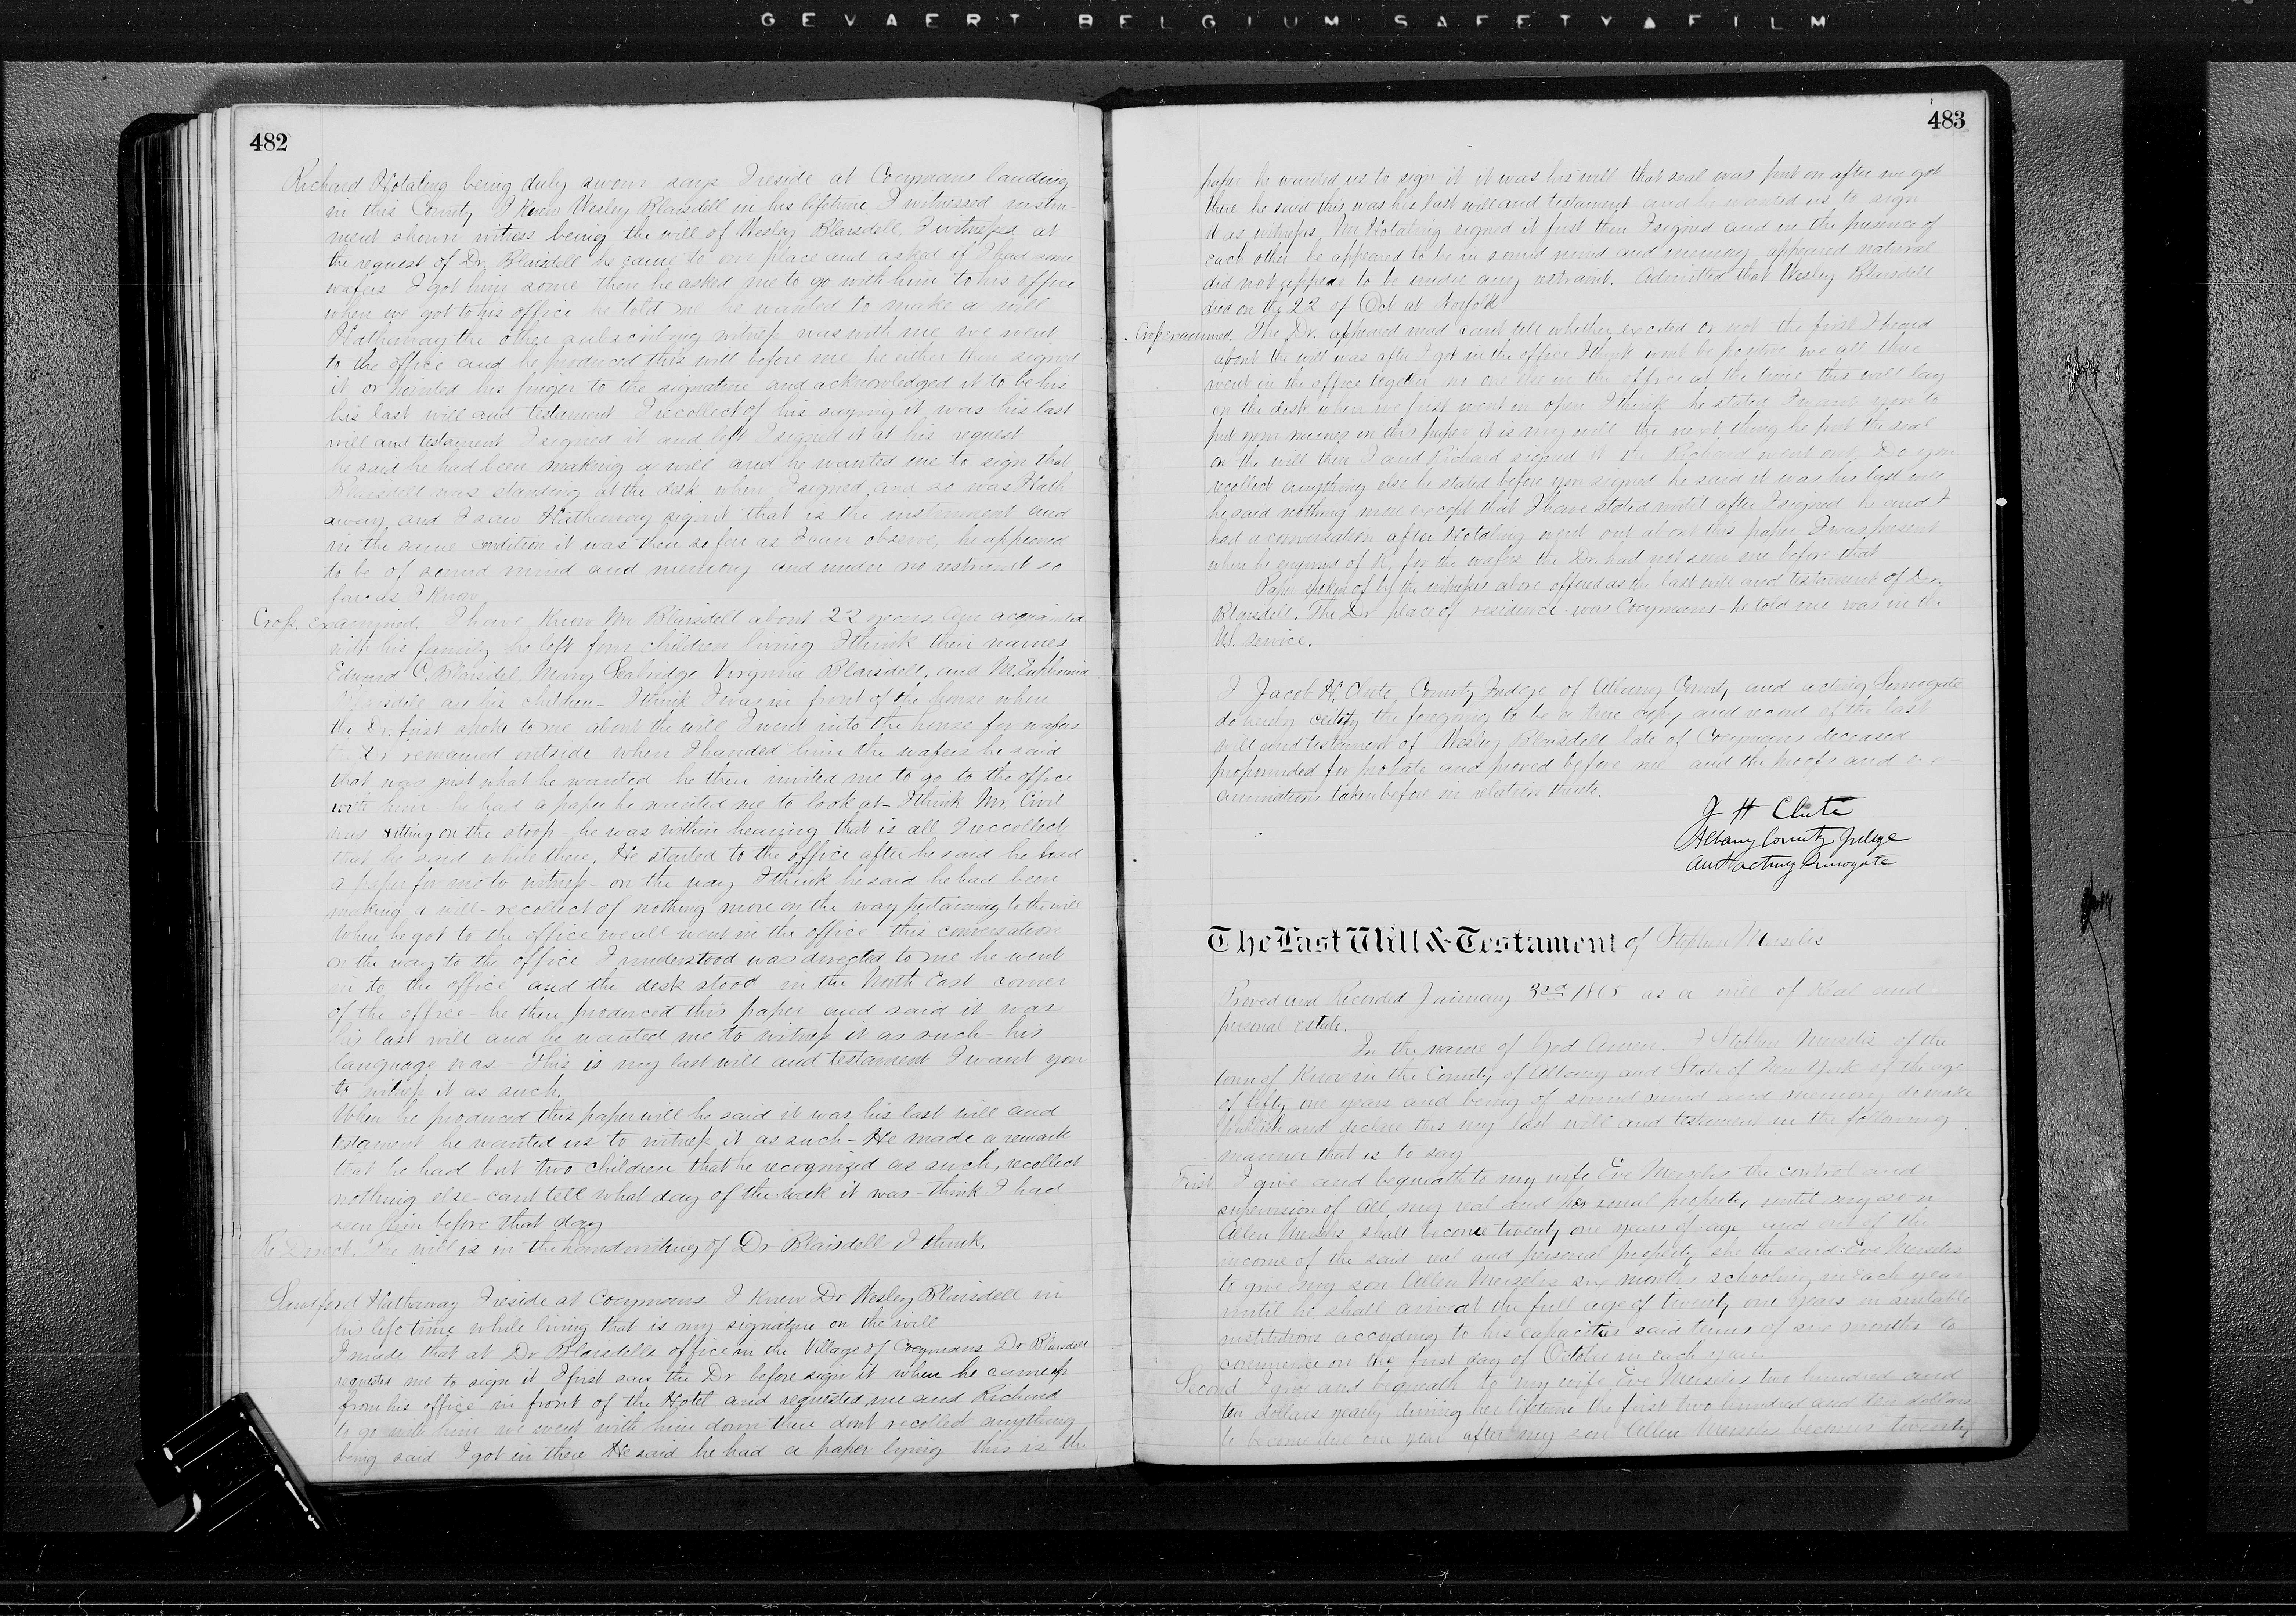 GEVAERT BELGIUM SAFETY▲FILM
482
Richard Hotaling being duly sworn says I reside at Coeymans landing
in this County I knew Wesley Blaisdell in his lifetime I witnessed instru-
ment shown witness being the will of Wesley Blaisdell, I witnesses at
the request of Dr. Blaisdell he came to our place and asked if I had some
wafers I got him some then he asked me to go with him to his office
when we got to his office he told me he wanted to make a will
Hathaway the other subscribing witness was with me we went
to the office and he produced this will before me, he either then signed
it or pointed his finger to the signature and acknowledged it to be his
his last will and testament I recollect of his saying it was his last
will and testament I signed it and left I signed it at his request
he said he had been making a will and he wanted me to sign that
Blaisdell was standing at the desk when I signed and so was Hath
away, and I saw Hathaway sign it that is the instrument and
in the same condition it was then so far as I can observe, he appeared
to be of sound mind and memory and under no restraint so
far as I know
Cross. examined. I have know Mr Blaisdell about 22 years am acquainted
with his family he left four children living I think their names
Edward C. Blaisdel, Mary Virginia Blaisdell, and M. Euphemia
Blaisdell are his children- I think I was in front of the house when
the Dr. first spoke to me about the will I went into the house for wafers
Dr remained outside when I handed him the wafers he said
that was just what he wanted he then invited me to go to the office
with him he had a paper he wanted me to look at- I think Mr. Civil
was sitting on the stoop he was within hearing that is all I reccollect
that he said while there. He started to the office after he said he had
a paper for me to witness- on the way I think he said he had been
making a will- recollect of nothing more on the way pertaining to the will
When he got to the office we all went in the office- this conversation
on the way to the office I understood was directed to me he went
in to the office and the desk stood in the North East corner
of the office- he then produced this paper and said it was
his last will and he wanted me to witness it as such- his
language was This is my last will and testament I want you
to witness it as such.
When he produced this paper will he said it was his last will and
testament he wanted us to witness it as such- He made a remark
that he had but two children that he recognized as such, recollect
nothing else- cant tell what day of the week it was- think I had
seen him before that day
Re Direct. The will is in the handwriting of Dr Blaisdell I think.
Sandford Hathaway I reside at Coeymans I knew Dr Wesley Blaisdell in
his life time while living that is my signature on the will
I made that at Dr Blaisdells office in the Village of Coeymans Dr Blaisdell
requested me to sign it I first saw the Dr before sign it when he came up
from his office in front of the Hotel and requested me and Richard
to go with him we went with him down there dont recollect anything
being said I got in there He said he had a paper lying this is the
483
paper he wanted us to sign it it was his will that seal was put on after we got
there he said this was his last will and testament and he wanted us to sign
it as witnesses, Mr Hotaling signed it first then I signed and in the presence of
each other he appeared to be in sound mind and memory appeared natural
did not appear to be under any restraint. Admitted that Wesley Blaisdell
died on the 22 of Oct at Norfolk
Cross examined. The Dr. appeared mad cant tell whether excited or not the first I heard
about the will was after I got in the office I think wont be positive we all three
went in the office together no one else in the office at the time this will lay
on the desk when we first went in open I think he stated I want you to
put your names on this paper it is my will the next thing he put the seal
on the will then I and Richard signed it Richard went out, Do you
recollect anything else he stated before you signed he said it was his last will
he said nothing more except that I have stated until after I signed he and I
had a conversation after Hotaling went out about this paper, I was present
when he enquired of R. for the wafers the Dr. had not seen me before that
Paper spoken of by the witnesses above offered as the last will and testament of Dr.
Blaisdell. The Dr place of residence was Coeymans he told me was in the
U.S. Service.
I Jacob H. Clute, County Judge of Albany County and acting Surrogate
do hereby certify the foregoing to be a true copy and record of the last
will and testament of Wesley Blaisdell late of Coeymans deceased
propounded for probate and proved before me and the proofs and ex-
aminations taken before in relation thereto.
J H Clute
Albany County Judge
and acting Surrogate
The Last Will & Testament of Stephen Merselis
Proved and Recorded January 3rd 1865 as a will of Real and
personal estate.
In the name of God Amen. I Stephen Merselis of the
town of Knox in the County of Albany and State of New York of the age
of one years and being of sound mind and memory do make
publish and declare this my last will and testament in the following
manner that is to say
First. I give and bequeath to my wife Eve Merselis the control and
supervision of all my real and personal property until my son
Allen Merselis shall become twenty one years of age and out of the
income of the said real and personal property she the said Eve Merselis
to give my son Allen Merselis six months schooling in each year
until he shall arrive at the full age of twenty one years in suitable
institutions according to his capacities said terms of six months to
commence on the first day of October in each year.
Second I give and bequeath to my wife Eve Merselis two hundred and
ten dollars yearly during her lifetime the first two hundred and ten dollars
to become due one year after my son Allen Merselis becomes twenty